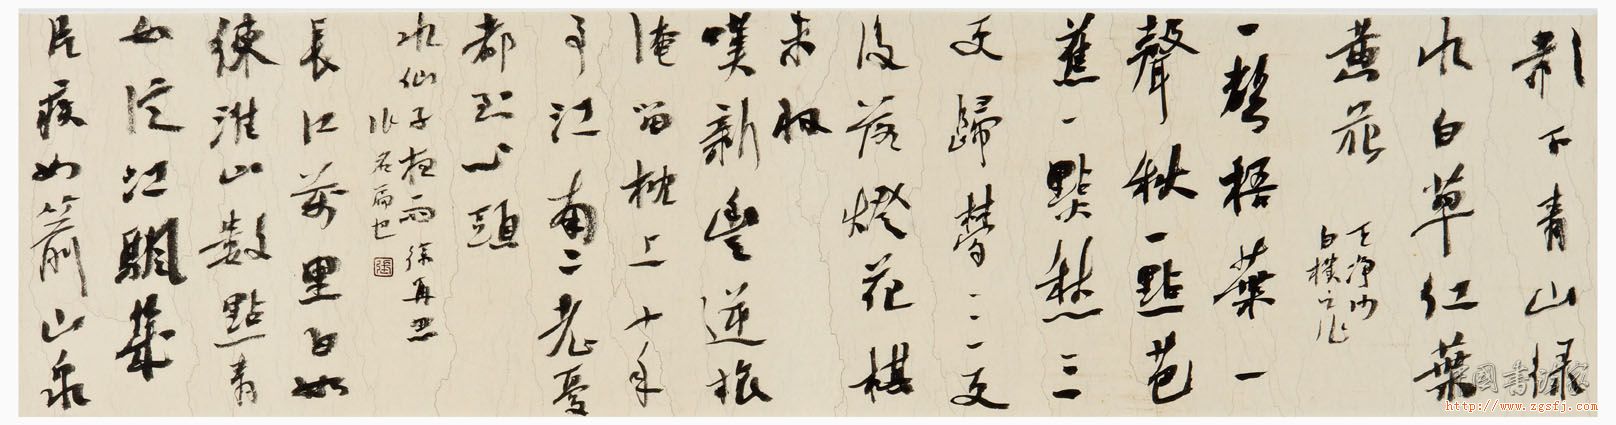 影下青山綠
水白草红葉
黄花
天净沙
白樸之作
一聲梧葉一
聲秋一點芭
蕉一點愁三
更歸夢三更
後落燈花棋
未收
嘆新豐逆旅
淹留枕上十年
事江南二老憂
都到心頭
水仙子夜雨徐再思
作名篇也
長江萬里白如
練淮山數點青
如淀江帆幾
片疾如箭山泉
http://www.zgsfj.com